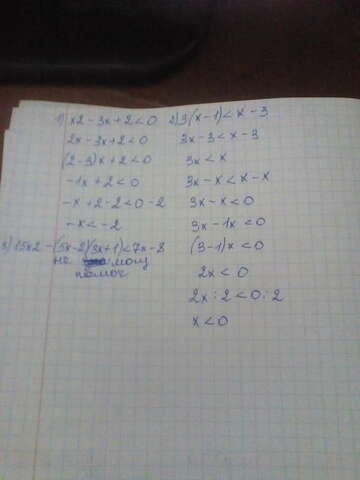 1) x2 - 3x + 2 < 0
2x - 3x + 2 < 0
(2 - 3)x + 2 < 0
-1x + 2 < 0
-x + 2 - 2 < 0 - 2
-x < -2
2) 3(x - 1) < x - 3
3x - 3 < x - 3
3x < x
3x - x < x - x
3x - x < 0
3x - 1x < 0
(3 - 1)x < 0
2x < 0
2x : 2 < 0 : 2
x < 0
3) 15x2 - (5x - 2)(3x + 1) < 7x - 8
не могу
помоч